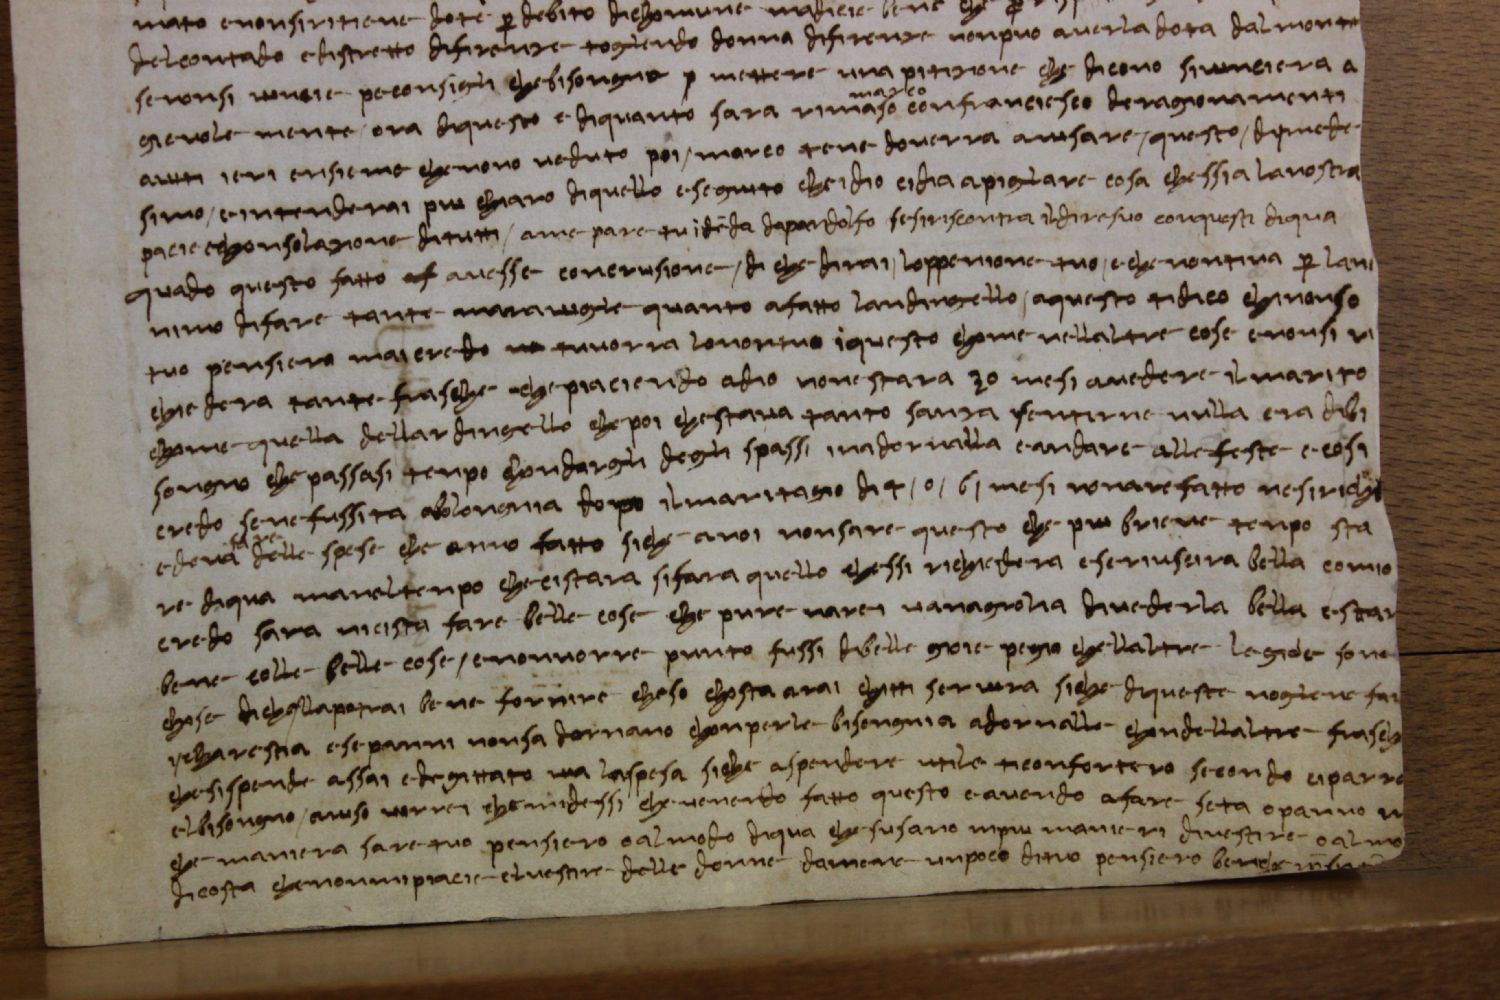 mato e nonsiritiene dote per debito dichomune madicie bene che
delcontado e distretto difirenze togliendo donna difirenze nonpuo averla dota dalmonte
senonsi vincie peconsigli chebisongnia p mettere una pitizione che dicono sivinciera a
gievole mente / ora diquesto e diquanto sara rimaso marco confranciesco deragionamenti
avuti ieri ensieme chenono veduto poi / marco tene doverra avisare / questo / dime de
simo / e intenderai piu chiaro diquello e seguito cheidio cidia apigliare cosa chessia lanostra
pacie echonsolazione ditutti / ame pare tuidēda dapandolfo sesiriscontra ildiresuo conquesti diqua
quado questo fatto avesse concrusione / di che dirai / loppenione tuo / e che nontina per lani
nimo difare tante maraviglie quanto afatto landingello / aquesto tidico chinonso
tuo pensiero maicredo tuvorra lonontuo iquesto chome nellaltre cose enonsi ri
chiedera tante frasche chepiaciendo adio nonestara 30 mesi avedere ilmarito
chome quella dellardingello che poi chestava tanto sanza sentirne nulla era dibi
songnio chepassasi tenpo chondargli degli spassi inadornalla e andare alle feste e cosi
credo senefussita abolongnia dopo ilmaritagio di 4 / o / 6 / mesi nonarefatto nesirichi
edeva fare delle spese che anno fatto siche anoi nonsare questo che piu brieve tenpo sta
re diqua maneltenpo checistara sifara quello chessi richiedera eseriusira bella como
credo sara nicista fare belle cose che pure narei vanagrolia divederla bella e star
bene colle belle cose / enonvorre punto fussi dibelle gioie pegio chellaltre legioie sono
chose dichellapotrai bene fornire cheso chosta arai chitti servira siche diqueste nogliene fai
charestia esepanni nonsa dornano chonperle bisongnia adornalle chondellaltre frasch
chesispende assai edegittato via laspesa siche aspendere utile ticonfortero secondo ciparra
elbisongno / aviso vorrei chemidessi che venendo fatto questo eavendo afare seta opanno in
che maniera saretuo pensiero oalmodo diqua chesusano inpiu manieri divestire oalmo
dicosta chenonmipiacie elvestire delle donne damene unpoco dituo pensiero benche